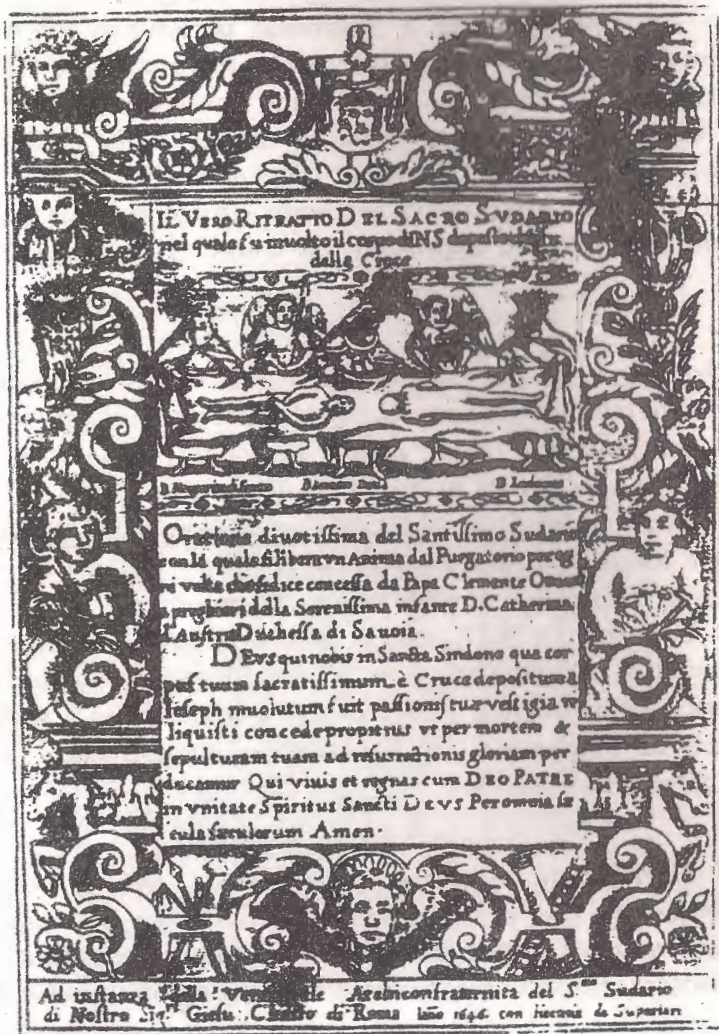 IL VERO RITRATTO DEL SACRO SVDARIO
nel quale fu inuolto il corpo di NS deposto
della Croce
B. Lodouico
Oratione diuotissima del Santissimo Sudario
con la quale si libera vn Anima dal Purgatorio per og
ni volta che si dice concessa da Papa Clemente
a preghieri della Serenissima infante D. Catherina
d'Austria Duchessa di Sauoia.
DEVS qui nobis in Sancta Sindone qua cor
pus tuum sacratissimum è Cruce depositum a
Ioseph inuolutum fuit passionis tuæ vestigia re
liquisti concede propitius vt per mortem &
sepulturam tuam ad resurrectionis gloriam per
ducamur Qui viuis et regnas cum DEO PATRE
in vnitate Spiritus Sancti DEVS Per omnia sæ
cula sæculorum Amen.
Ad instanza della Archiconfraternita del S.mo Sudario
di Nostro Sig.re Giesu Christo di Roma 1646 con licenza de Superiori